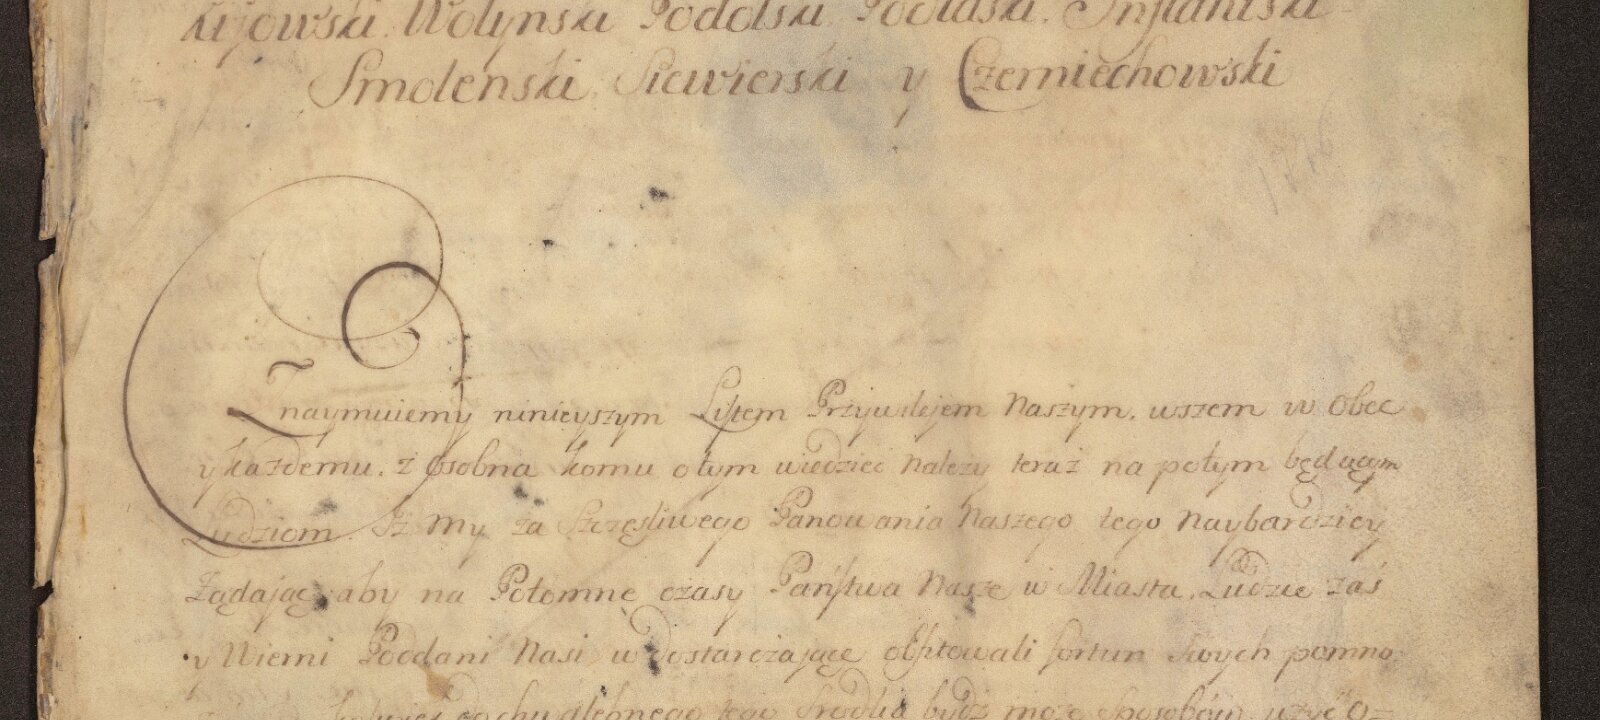 Kijowski, Wołyński Podolski, Podlaski, Inflantski
Smolenski, Siewierski y Czerniechowski
Znaymuiemy ninieyszym Listem Przywilejem Naszym, wszem w obec
y każdemu, z osobna komu o tym wiedzieć należy teraz na potym będącym
Ludziom. Iż My za Szczęsliwego Panowania Naszego tego Naybardziey
Żądając, aby na Potomne czasy Państwa Nasze w Miasta, Ludzie zaś
y Wierni Poddani Nasi w dostarczające obfitowali fortun swych pomno
dochwalebnego tego Srodka bydź może sposobów, użyć